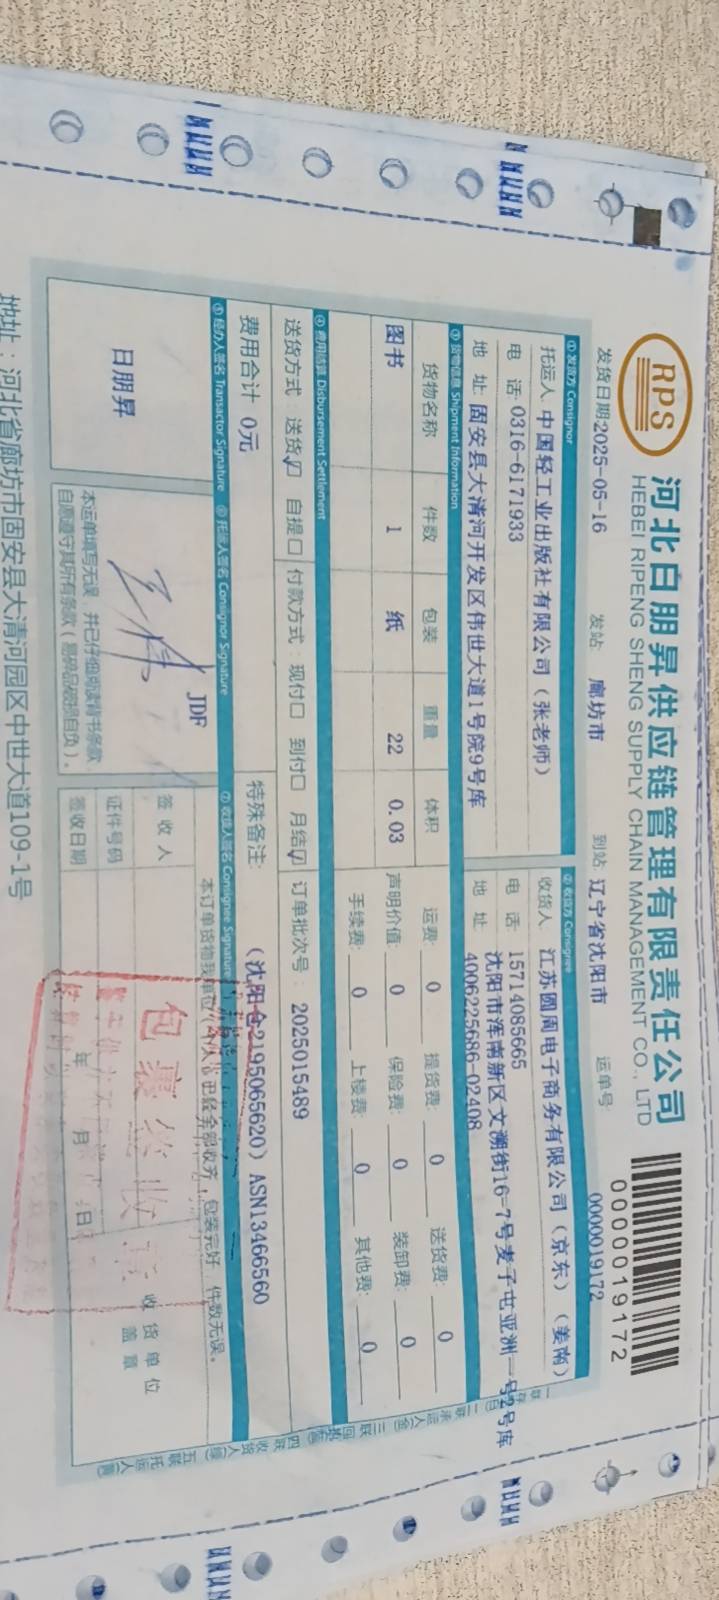 RPS
河北日朋昇供应链管理有限责任公司
HEBEI RIPENG SHENG SUPPLY CHAIN MANAGEMENT CO., LTD
0000019172
发货日期:2025-05-16 发站: 廊坊市 到站: 辽宁省沈阳市 运单号: 0000019172
① 发货方 Consignor ② 收货方 Consignee
托运人: 中国轻工业出版社有限公司（张老师） 收货人: 江苏圆周电子商务有限公司（京东）（姜南）
电 话: 0316-6171933 电 话: 15714085665
地 址: 固安县大清河开发区伟世大道1号院9号库 地 址: 沈阳市浑南新区文溯街16-7号麦子屯亚洲一号2号库
4006225686-02408
③ 货物信息 Shipment Information
货物名称 件数 包装 重量 体积 运费: 0 提货费: 0 送货费: 0
图书 1 纸 22 0.03 声明价值: 0 保险费: 0 装卸费: 0
手续费: 0 上楼费: 0 其他费: 0
④ 费用结算 Disbursement Settlement
送货方式: 送货☑ 自提□ 付款方式: 现付□ 到付□ 月结☑ 订单批次号: 2025015489
费用合计 0元 特殊备注: （沈阳仓2195065620）ASN13466560
⑤ 经办人签名 Transactor Signature ⑥ 托运人签名 Consignor Signature ⑦ 收货人签名 Consignee Signature
日朋昇
JDF
本订单货物我单位/个人 已经全部收齐，包装完好，件数无误。
本运单填写无误，并已仔细阅读背书条款
自愿遵守其所有条款（易碎品破损自负）。
签 收 人
证件号码
签收日期 年 月 日
收货单位
盖 章
包裹签收
地址：河北省廊坊市固安县大清河园区中世大道109-1号